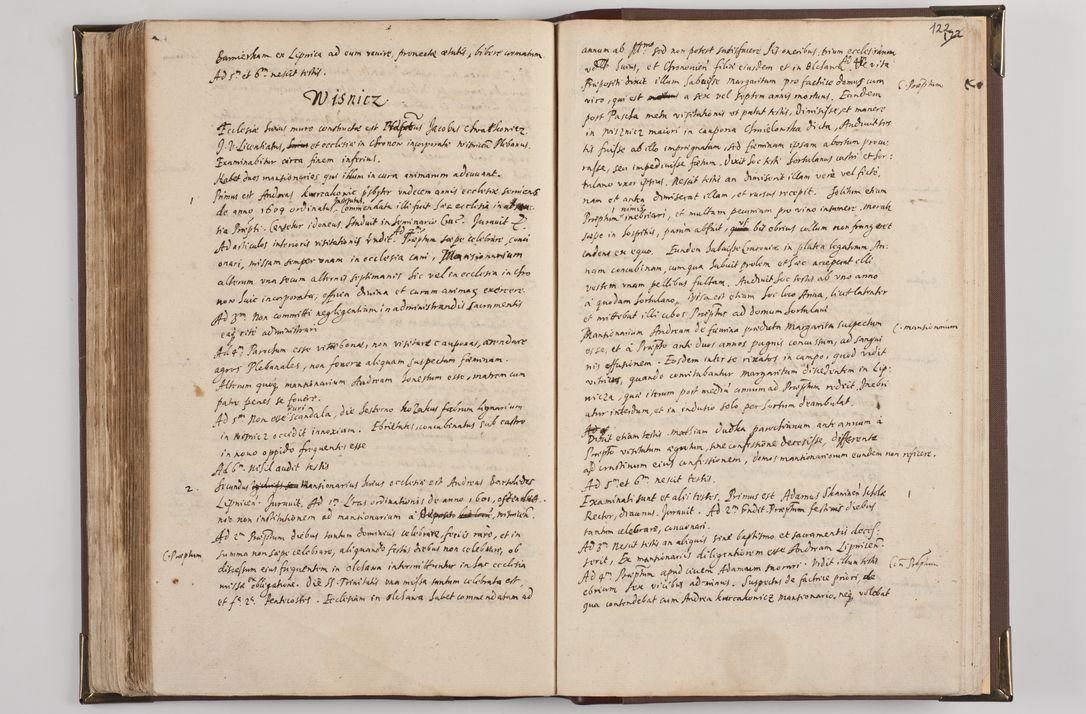 ex Lipnica ad eum venire, provectae aetatis, bibere
Ad 5m et 6m nescit testis.
Wisnicz
Ecclesia huius muro constructa est Jacobus
J. V. Licentiatus, et ecclesiae in Chronow incorporatae Plebanus.
Examinabitur circa finem inferius.
Habet duos mansionarios qui illum in cura animarum adiuvant.
1
Primus est Andreas psbyter undecem annis ecclesiae serviens
de anno 1609 ordinatus, Commendata illi fuit haec ecclesia in
tia Praepti. Censetur idoneus, studuit in seminario Juravit
Ad articulos interioris visitationis Praeptum saepe celebrare, conci
onari, missam semper unam in ecclesia cani, Mansionarium
alterum una secum alternis septimanis hic vel in ecclesia in Chro
now huic incorporata, officia divina et curam animarum exercere.
Ad 3m Non committi negligentiam in administrandis sacramentis
eaque rite administrari
Ad 4m Parochum esse vitae bonae, non visitare cauponas, arendare
agros Plebanales, non fovere aliquam suspectam foeminam.
Alterum quoque mansionarium Andream honestum esse, matrem cum
patre penes se fovere.
Ad 5m Non esse scandala, die hesterno Kozakus
in Wisnicz occidit innoxium. Ebrietates, concubinatus sub castro
in novo oppido frequentes esse
Ad 6m Nihil audit testis
2.
Secundus mansionarius huius ecclesiae est Andreas
Lipnicen. Juravit. Ad 1m Lras ordinationis de anno 1601,
nec non institutionem ad mansionariam a
C. Praeptum
Ad 2m Praeptum diebus tantum dominicis celebrare, feriis raro, et in
summa non saepe celebrare, aliquando festis diebus non celebrare, ob
discessum eius frequentem in Olchawa intermittuntur in hac ecclesia
missae obligatione. Die SS. Trinitatis una missa tantum celebrata est,
et fa 2a Pentecostes. Ecclesiam in Olchawa habet commendatam ad
122
122
annum ab sed non potest satisfacere his oneribus, trium ecclesiarum
huius, et Chronovien filiae eiusdem et in Olchawa. Ad 4m De vita
C. Praeptum
Praepositi dixit illum habuisse Margaritam pro factrice domus cum
viro, qui est a sex vel septem annis mortuus. Eandem
post Pascha metu visitationis ut putat testis, dimisisse, et manere
in Wisznicz maiori in cauponia Chmielowska dicta, Audivit tes
tis fuisse ab illo impregnatam, sed foeminam ipsam abortum procu
rasse, seu impedivisse foetum. Dixit hoc testi hortulanus castri et hor
tulano uxor ipsius. Nescit testis an dimiserit illam vere vel ficte,
nam et antea dimiserat illam, et rursus recepit. Solitum etiam
Praeptum nimis inebriari, et multam pecuniam pro vino insumere, morat
saepe in hospitiis, parum abfuit, bis ebrius collum non frangeret
cadens ex equo. Eundem habuisse Cracoviae in platea legatinam An:
nam concubinam, cum qua habuit prolem et hic accepit illi
vestem unam pellibus fultam. Audivit hoc testis ab uno anno
a quodam hortulano, visa est etiam hoc loco Anna, licet latenter
et mittebat illi cibos Praeptus ad domum hortulani
C. mansionarium
Mansionarium Andream de foemina praedicta Margarita suspectum
esse, et a Praepto ante duos annos pugnis concussum, ad sangui
nis effusionem. Eosdem inter se rixatos in campo, quod vidit
quando comitabantur Margaritam discedentem in Lip:
nicza, quae iterum post medium annum ad Praeptum rediit. Inebri
atur interdum, et in indusio solo per hortum deambulat.
Dixit etiam testis, Mathiam Dudka parochianum ante annum a
Praepto visitatum aegrotum, sine confessione decessisse, differente
ad crastinum eius confessionem, domos mansionariorum eundem non reficere.
Ad 5m et 6m nescit testis.
1
Examinati sunt et alii testes. Primus est Adamus scholae
Rector, Juravit. Ad 2m Praeptum festivis diebus
tantum celebrare, concionari.
Ad 3m Nescit testis an aliquis sine baptismo et sacramentis deces:
serit, Ex mansionariis diligentiorem esse Andream Lipnicen.
C. Praeptum
Ad 4m Praeptum apud civem Adamum morari. Vidit illum testis
ebrium sex vicibus ad minus. Suspectus de factrice priori, de
qua contendebat cum Andrea mansionario, neque volebat